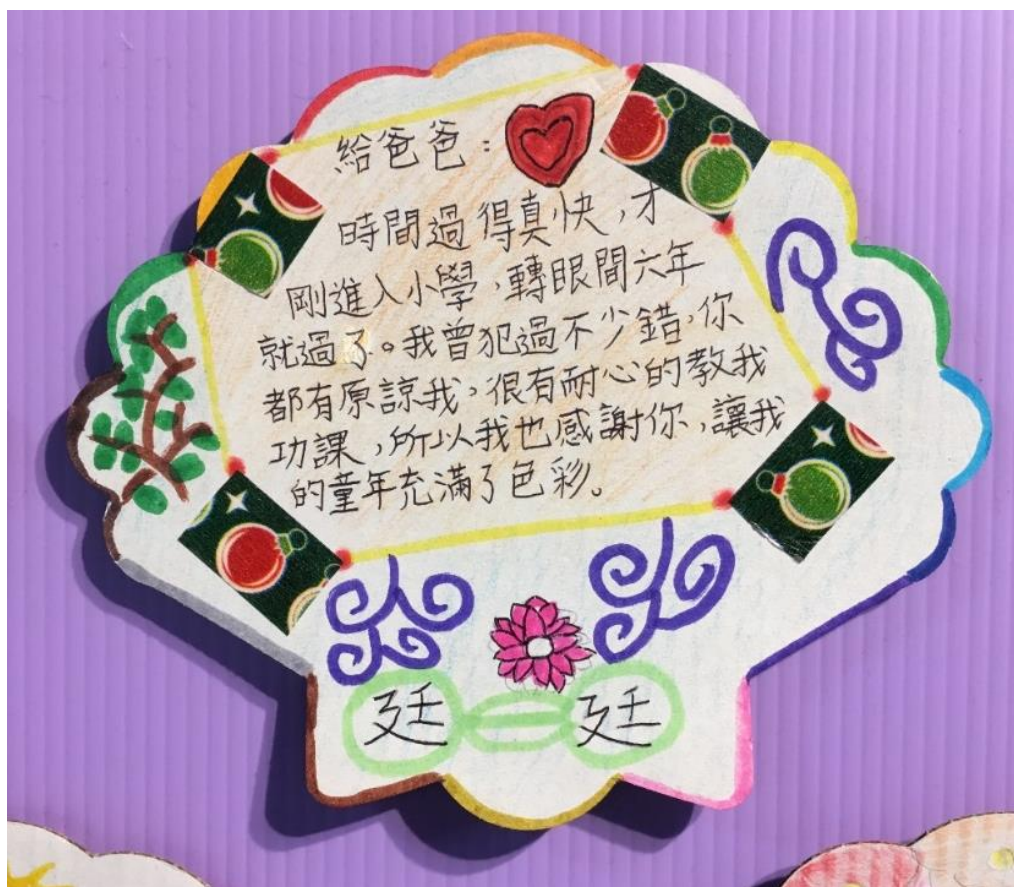 給爸爸：
時間過得真快，才
剛進入小學，轉眼間六年
就過了。我曾犯過不少錯，你
都有原諒我，很有耐心的教我
功課，所以我也感謝你，讓我
的童年充滿了色彩。
廷廷